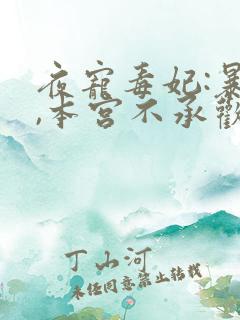 夜寵毒妃:暴
,本宮不承歡
丁山河
未经同意禁止转载